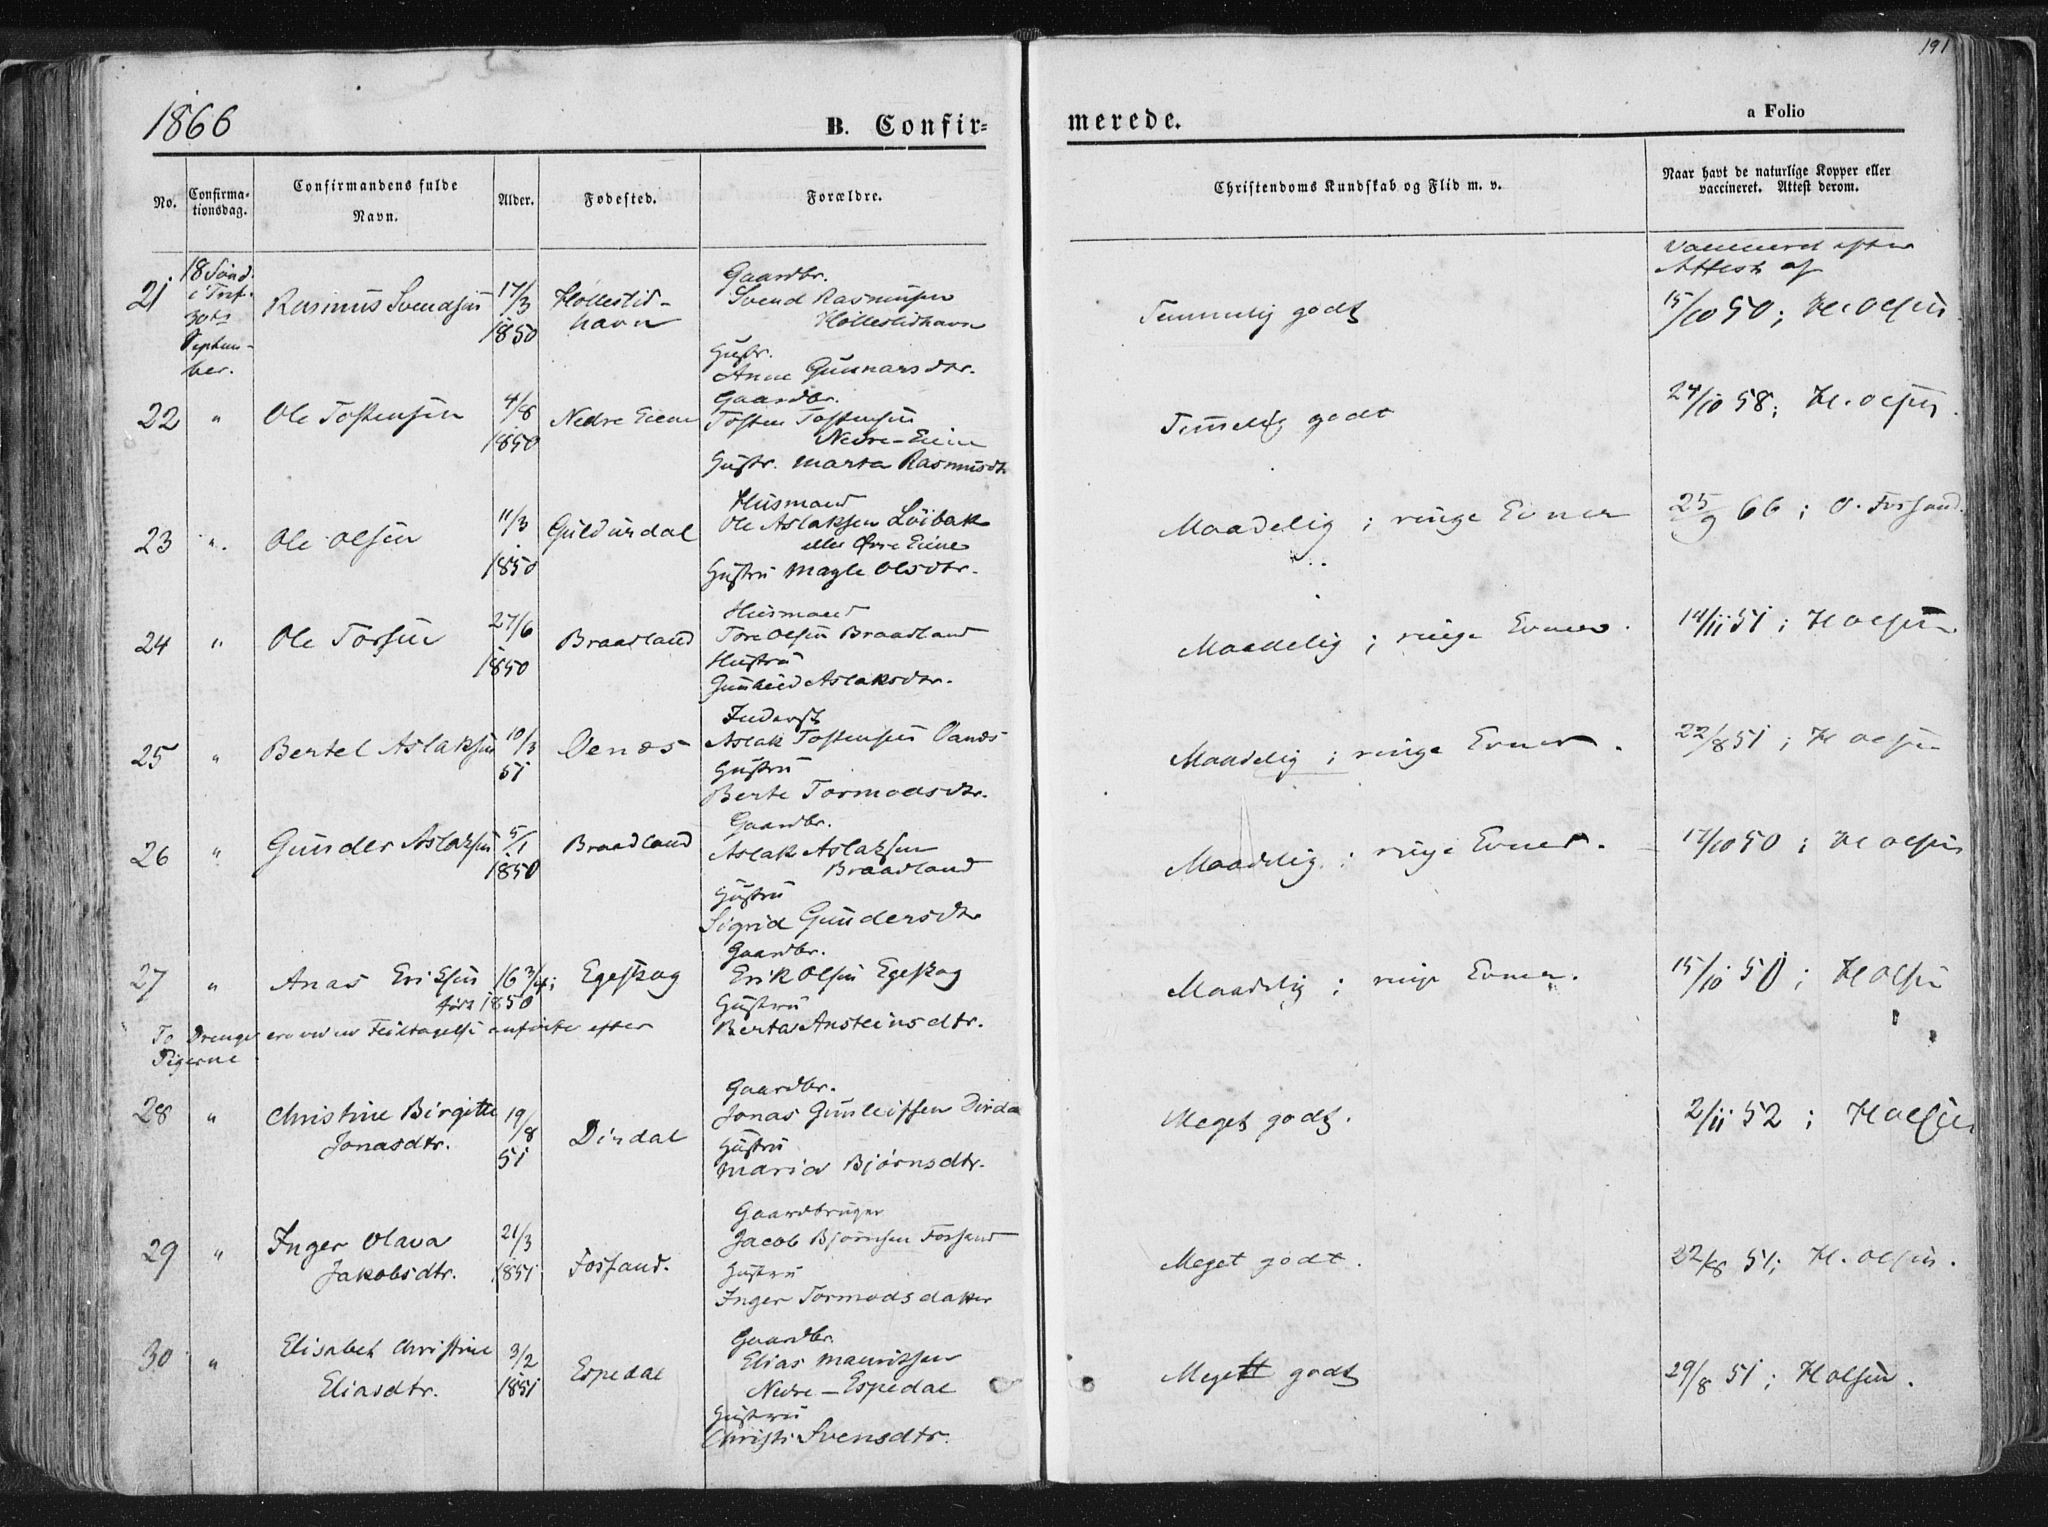 191
1866
B. Confir=
merede.
a Folio
No.
Confirma-
tionsdag.
Confirmandens fulde
Navn.
Alder.
Fødested.
Forældre.
Christendoms Kundskab og Flid m. v.
Naar havt de naturlige Kopper eller
vaccineret. Attest derom.
vaccineret efter
Attest af
21
18 Sønd.
i Tref.
30te
Septem-
ber.
Rasmus Svendsen
17/3
1850
Hølleslid-
havn
Gaardbr.
Svend Rasmusen
Hølleslidhavn
Hustr.
Anne Gunnarsdtr.
Temmelig godt
15/10 50; H. Olsen
22
"
Ole Tostensen
4/8
1850
Nedre Eiene
Gaardbr.
Tosten Tostensen
Nedre-Eiene
Hustr. Marta Rasmusdtr
Temelig godt
24/10 58; H. Olsen.
23
"
Ole Olsen
11/3
1850
Guldurdal
Husmand
Ole Aslaksen Løibak
eller Øvre Eiene
Hustru Magle Olsdtr.
Maadelig; ringe Evner
25/9 66; O. Forsand.
24
"
Ole Torsen
27/6
1850
Braadland
Husmand
Tore Olsen Braadland
Hustru
Gunhild Aslaksdtr.
Maadelig; ringe Evner.
14/11 51; H Olsen.
25
"
Bertel Aslaksen
10/3
51
Oenæs
Inderst
Aslak Tostensen
Hustru
Berte Tormodsdtr.
Maadelig; ringe Evner.
22/8 51; H Olsen
26
"
Gunder Aslaksen
5/1
1850
Braadland
Gaardbr.
Aslak Aslaksen
Braadland
Hustru
Sigrid Gundersdtr
Maadelig; ringe Evner.
17/10 50; H Olsen
27
"
Anas Eriksen
16 3/4;
født 1850
Egeskog
Gaardbr.
Erik Olsen Egeskog
Hustru
Berta Ansteinsdtr.
Maadelig; ringe Evner.
15/10 50; H Olsen
To Drenge ere ved en Feiltagelse anførte efter
Pigerne
28
"
Christine Birgitte
Jonasdtr.
19/8
51
Dirdal
Gaardbr.
Jonas Gunleifsen Dirdal
Hustru
Maria Bjørnsdtr.
Meget godt.
2/11 52; H Olsen
29
"
Inger Olava
Jakobsdtr.
21/3
1851
Forsand.
Gaardbruger
Jacob Bjørnsen Forsand
Hustru
Inger Tormodsdatter
Meget godt.
22/8 51; H. Olsen.
30
"
Elisabet Christine
Eliasdtr.
3/2
1851
Espedal
Gaardbr.
Elias Mauritsen
Nedre-Espedal
Hustru
Christi Svensdtr.
Meget godt
29/8 51; H Olsen.